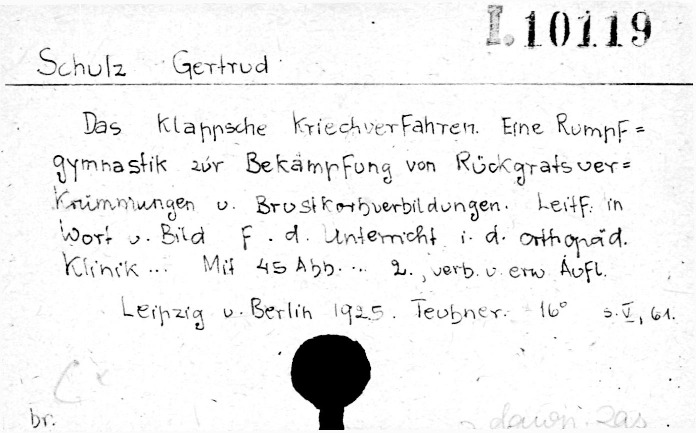 I. 10119
Schulz Gertrud
Das Klappsche Kriechverfahren. Eine Rumpf=
gymnastik zur Bekämpfung von Rückgratsver=
Krümmungen u. Brustkorbverbildungen. Leitf. in
Wort u. Bild f. d. Unterricht i. d. orthopäd.
Klinik ... Mit 45 Abb. ... 2., verb. u. erw. Aufl.
Leipzig u. Berlin 1925. Teubner. 16° s. V, 61.
br.